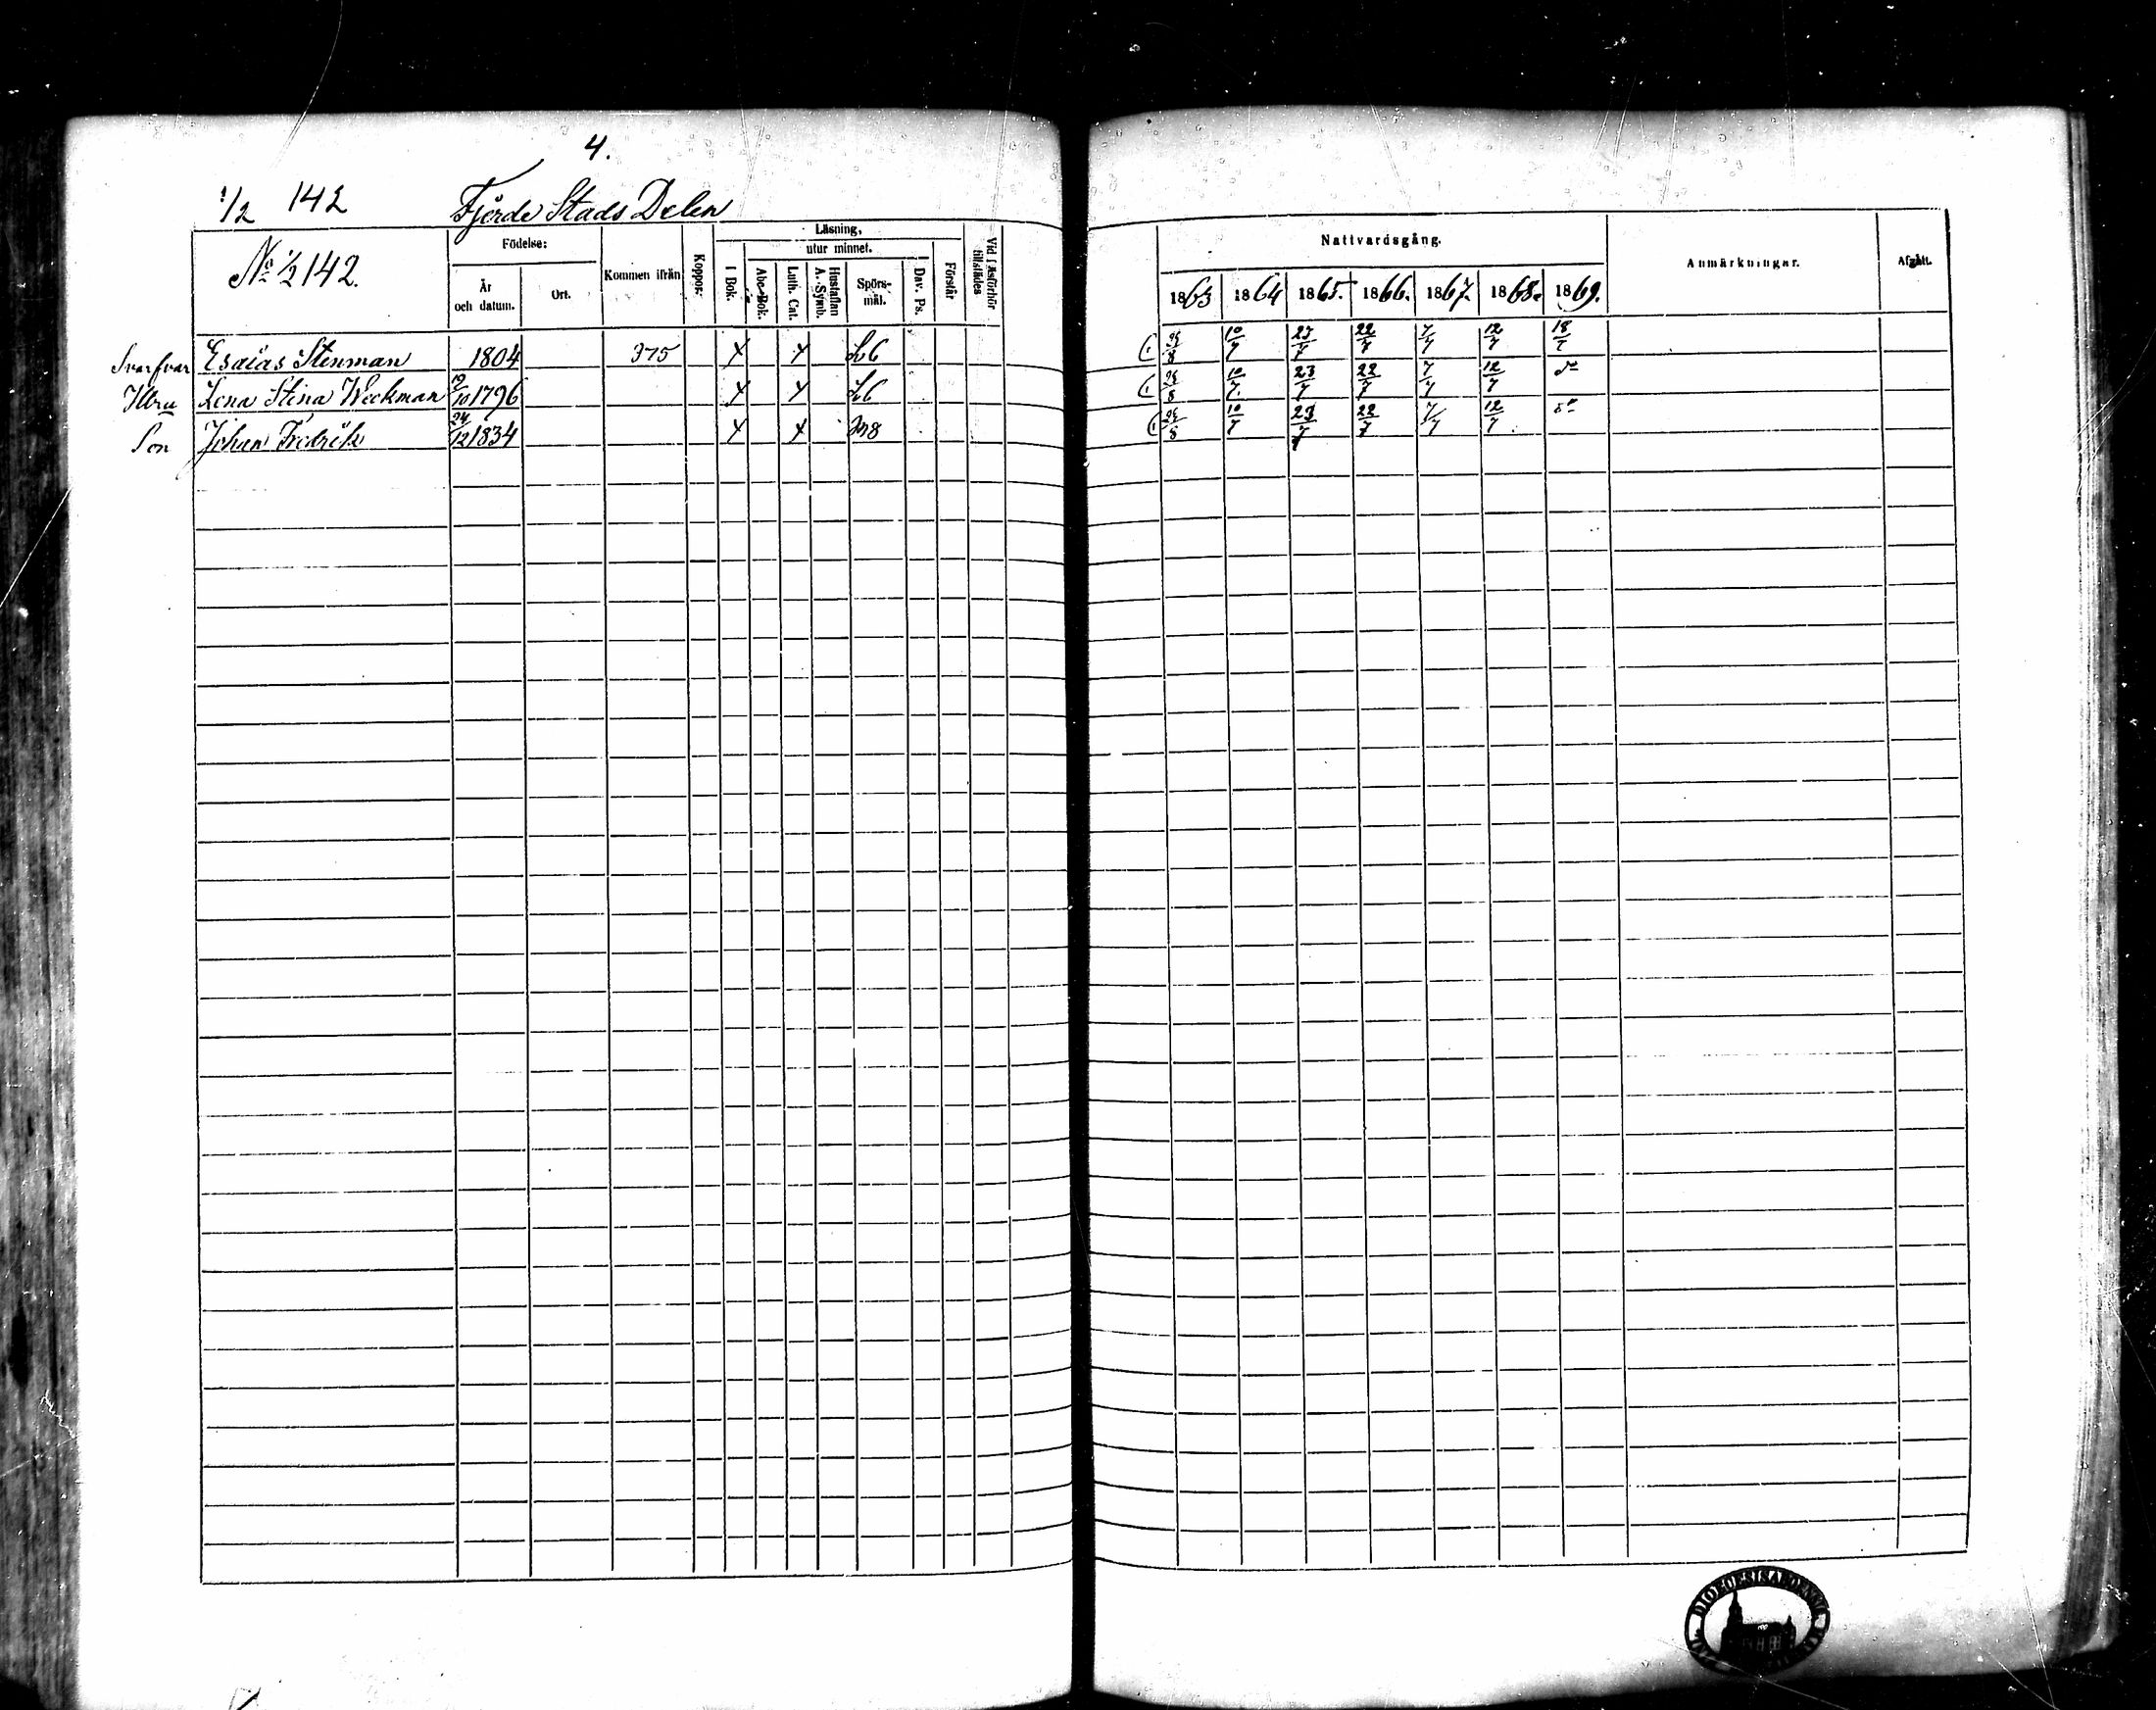 4.
1/2 142 Fjerde Stads Delen
No 1/2 142.
Födelse:
År och datum.
Ort.
Kommen ifrån
Koppor.
Läsning,
utur minnet.
I Bok.
Abc-Bok.
Luth. Cat.
Hustaflan A. Symb.
Spörs-mål.
Dav. Ps.
Förstår
Vid Läsförhör tillstädes
Nattvardsgång.
1863 1864 1865. 1866. 1867. 1868. 1869.
Anmärkningar.
Afgått.
Svarfvar Esaias Stenman 1804 375 L6 10/7 23/7 22/7 7/7 12/7
Hstru Lena Stina Weckman 19/10 1796 L6 10/7 23/7 22/7 7/7 12/7 do
Son Johan Fredrik 24/12 1834 10/7 23/7 22/7 7/7 12/7 do